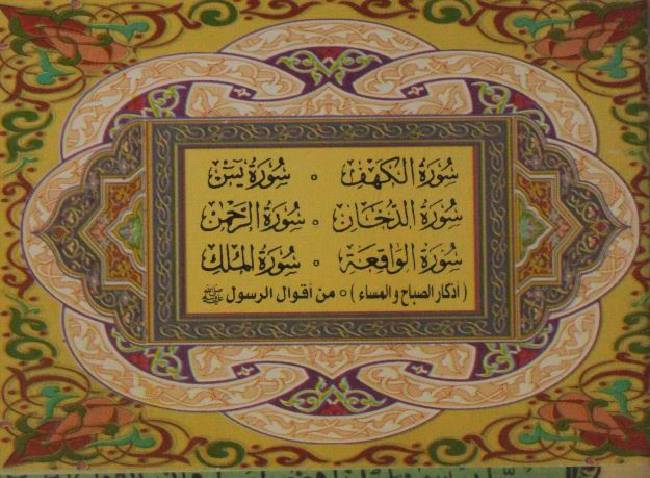 سُورَةُ الكَهْفِ ۰ سُورَةُ يسٓ
سُورَةُ الدُّخَانِ ۰ سُورَةُ الرَّحْمٰن
سُورَةُ الوَاقِعَةِ ۰ سُورَةُ المُلْكِ
( اذكار الصباح والمساء ) ۰ من أقوال الرسول ﷺ